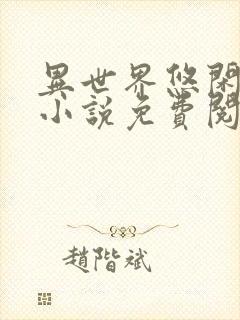 異世界悠閑
小說免費閱
趙階斌